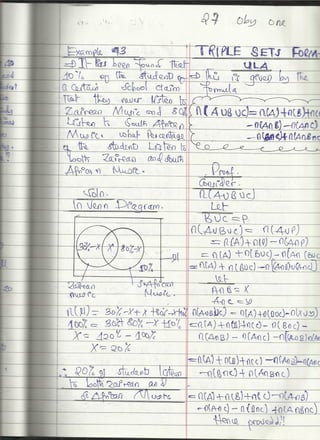 Example 93
=> It has been found that
10% of the students of
a certain school claim
that they never listen to
Zairean Music and 80%
Listen to South African
Music. what Percentage
of the student Listen to
both Zairean and South
African Music.
Soln.
In Venn Diagram.
30%-X X 80%-X
10%
Zairean
music
S.African
Music.
100% = 30+80%-X+10%
X = 120% - 100%
X = 20%
∴ 20% of students listen
to both Zairean and
S. African Music
TRIPLE SETS FORM-
ULA
=> This is given by the
formula
n(AUBUC) = n(A)+n(B)+n(C)
-n(AnB)-n(AnC)
-n(BnC)+n(AnBnC)
Proof.
Consider.
n(AUBUC)
Let
BUC = P.
n(AUBUC) = n(AUP)
= n(A)+n(P)-n(AnP)
= n(A)+n(BUC)-n(An(BUC
let
AnB = X
AnC = y
= n(A)+n(B)+n(C)-n(BnC)-
n(AnB)-n(AnC)
= n(A)+n(B)+n(C)-n(AnB)-n(AnC)
-n(BnC)+n(AnBnC)
= n(A)+n(B)+n(C)-n(AnB)
-n(AnC)-n(BnC)+n(AnBnC)
Hence proved!!